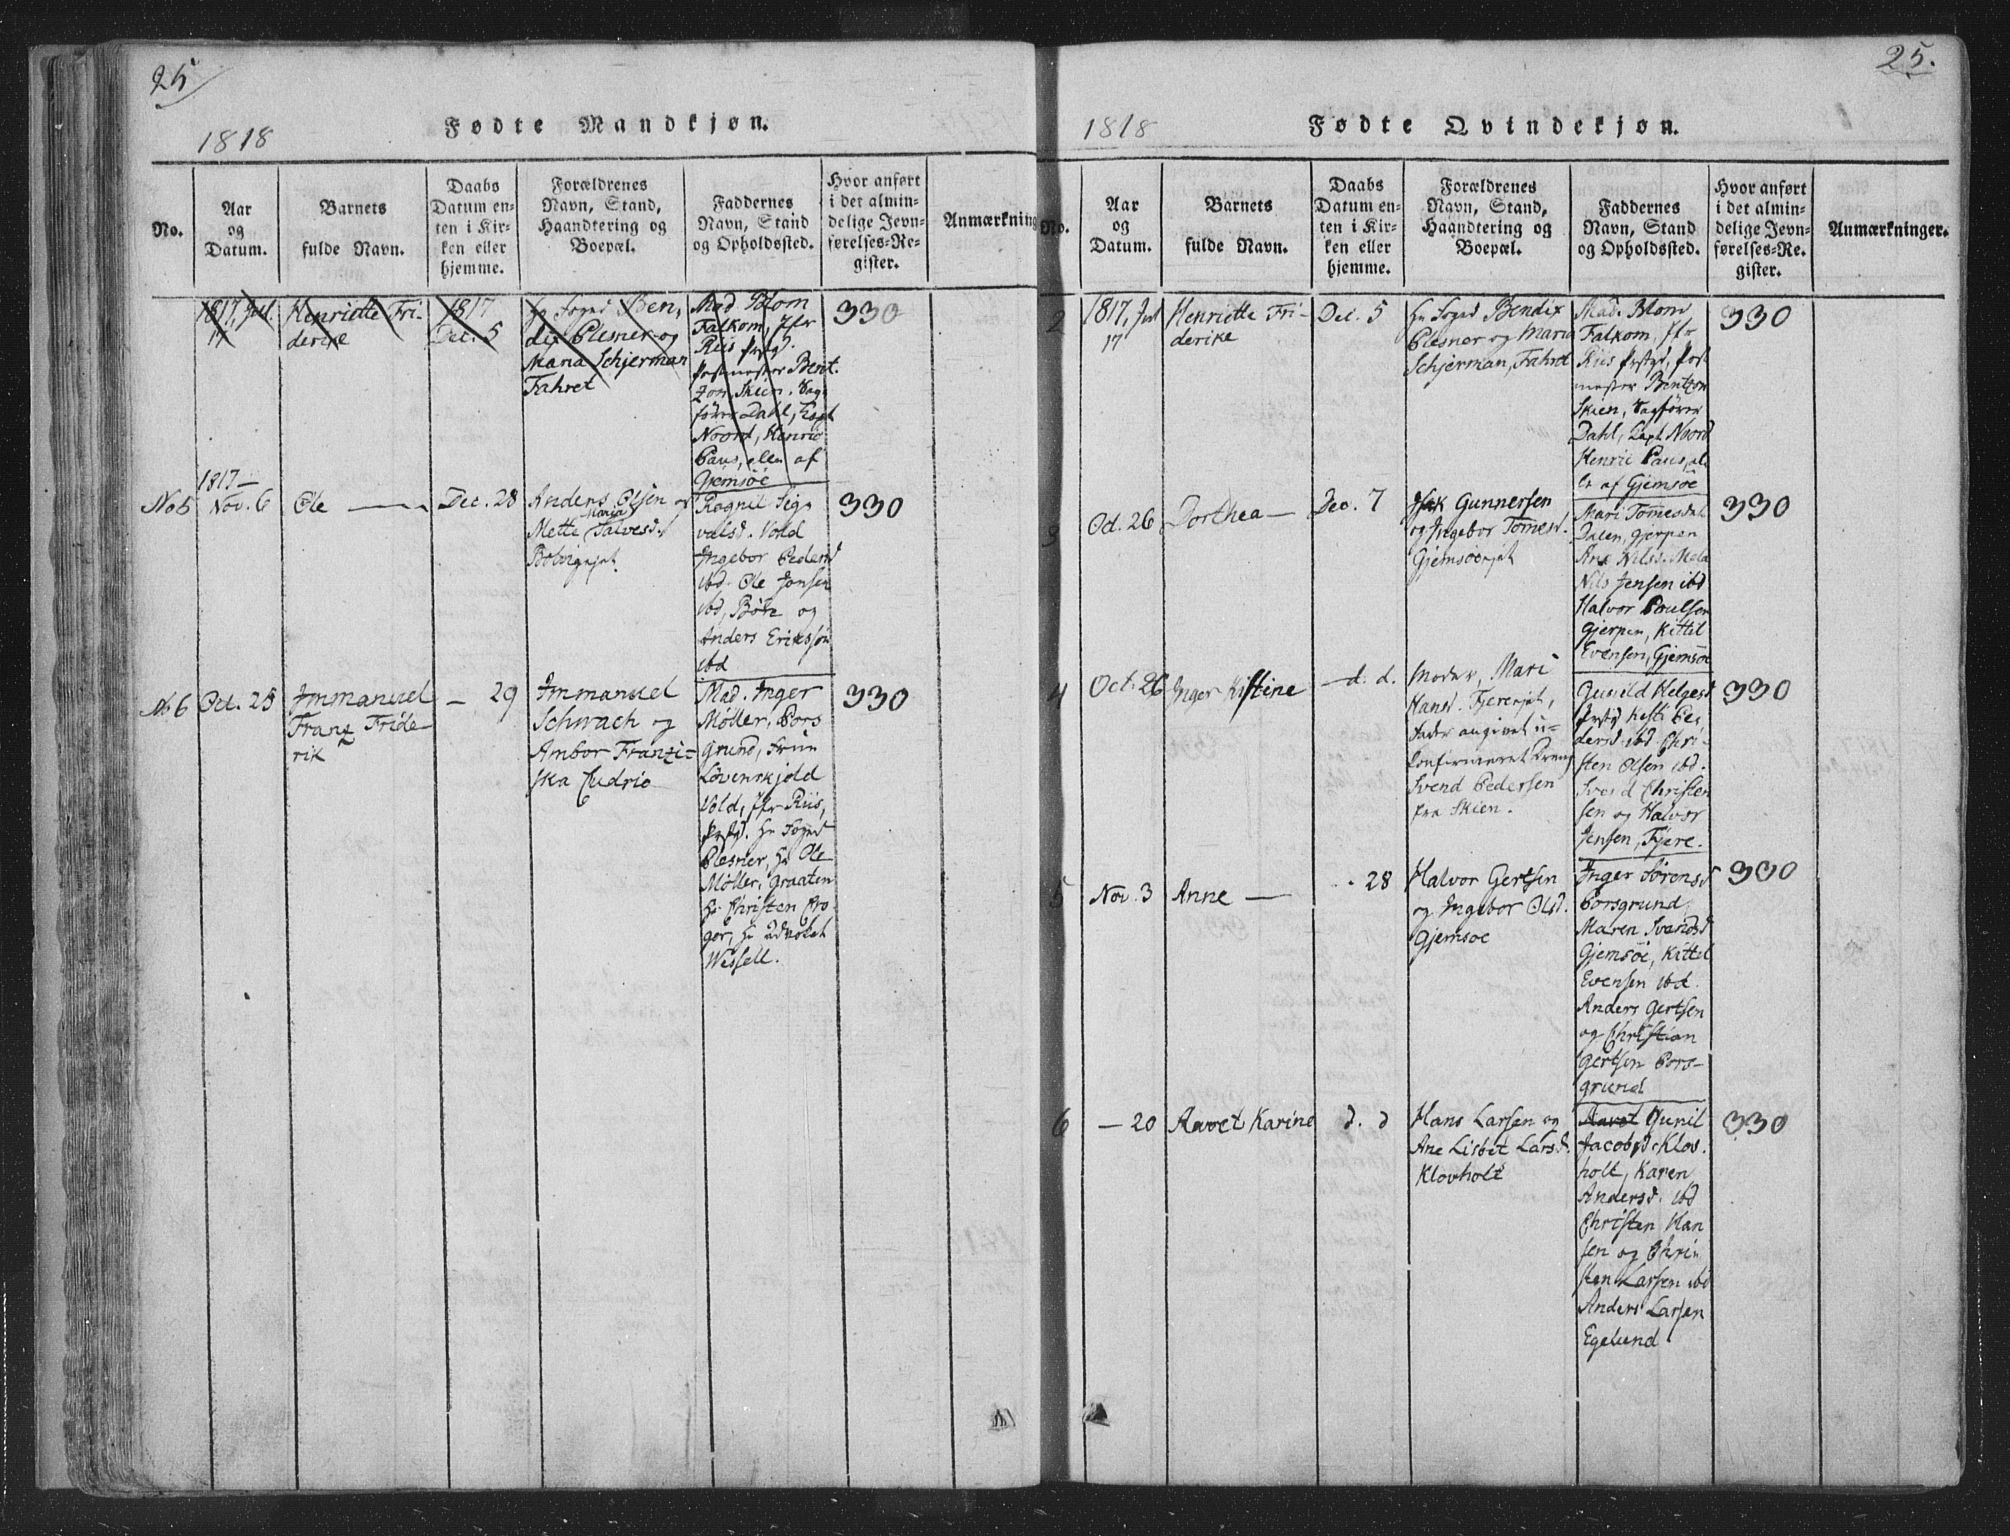 25
1818
Fødte Mandkjøn.
No.
Aar
og
Datum.
Barnets
fulde Navn.
Daabs
Datum en-
ten i Kir-
ken eller
hjemme.
Forældrenes
Navn, Stand,
Haandtering og
Boepæl.
Faddernes
Navn, Stand
og Opholdssted.
Hvor anført
i det almin-
delige Jevn-
førelses-Re-
gister.
Anmærkning
1817, Jul
17
Henriette Fri-
derike
1817
Dec. 5
Hr Sogpr Ben-
dix Plesner og
Maria Schjerman
Fahret
Mad Blom
Falkom, Jfr
Riis Prstgd.
Postmester Bent
zon, Skien. Sag-
fører Dahl, Capt
Noord, Henric
Paus, alle af
Gjemsöe
330
No 5
1817
Nov. 6
Ole
Dec. 28
Anders Olsen og
Mette Maria Salvesd.
Bolvigejet
Ragnil Sig-
valsd. Vold
Ingebor Pedersd
ibd. Ole Jonsen
ibd, Böle og
Anders Erikssön
ibd
330
No 6
Oct. 25
Immanuel
Franz Fride-
rik
— 29
Immanuel
Schwach og
Ambor Franzi-
ska Cudrio
Mad. Inger
Møller, Pors
Grund, Frue
Lövenskjold
Vold, Jfr Riis,
Prstgd. Hr Sogpr
Plesner, Hr Ole
Møller, Graaten
Hr Christen Cro-
ger, Hr Advokat
Wessell.
330
25.
1818
Fødte Qvindekjøn.
No.
Aar
og
Datum.
Barnets
fulde Navn.
Daabs
Datum en-
ten i Kir-
ken eller
hjemme.
Forældrenes
Navn, Stand,
Haandtering og
Boepæl.
Faddernes
Navn, Stand
og Opholdssted.
Hvor anført
i det almin-
delige Jevn-
førelses-Re-
gister.
Anmærkninger.
2
1817, Jul
17
Henriette Fri-
derike
Dec. 5
Hr Sogpr Bendix
Plesner og Maria
Schjerman, Fahret
Mad. Blom
Falkom, Jfr
Riis Prstgd, Post
mester Bentzon
Skien, Sagfører
Dahl, Capt Noord
Henric Paus, al-
le af Gjemsöe
330
3
Oct. 26
Dorthea
Dec. 7
Isak Gunnersen
og Ingebor Tomesd.
Gjemsöeejet
Mari Tomesdat
Dalen, Gjerpen
Ane Nilsd. Mæla
Nils Jensen ibd
Halvor Poulsen
Gjerpen, Kittil
Evensen, Gjemsöe
330
4
Oct. 26
Inger Kistine
— d. d.
Moder, Mari
Hansd. Fjereejet,
Fader angivet u-
konfirmeret Dreng
Svend Pedersen
fra Skien.
Gunild Helgesd
Prstgd Kisti Pe-
dersd ibd Chri-
sten Olsen ibd.
Svend Christen
sen og Halvor
Jensen, Fjere.
330
5
Nov. 3
Anne
- 28
Halvor Gertsen
og Ingebor Olsd.
Gjemsöe
Inger Sörensd
Porsgrund.
Maren Svendsd
Gjemsöe, Kittil
Evensen ibd.
Anders Gertsen
og Christian
Gertsen Pors-
grund
330
6
— 20
Aavet Karine
d. d
Hans Larsen og
Ane Lisbet Larsd.
Klovholt
Aavet Gunil
Jacobsd. Klov.
holt, Karen
Andersd. ibd
Christen Han
sen og Chri-
sten Larsen ibd
Anders Larsen
Egelund
330